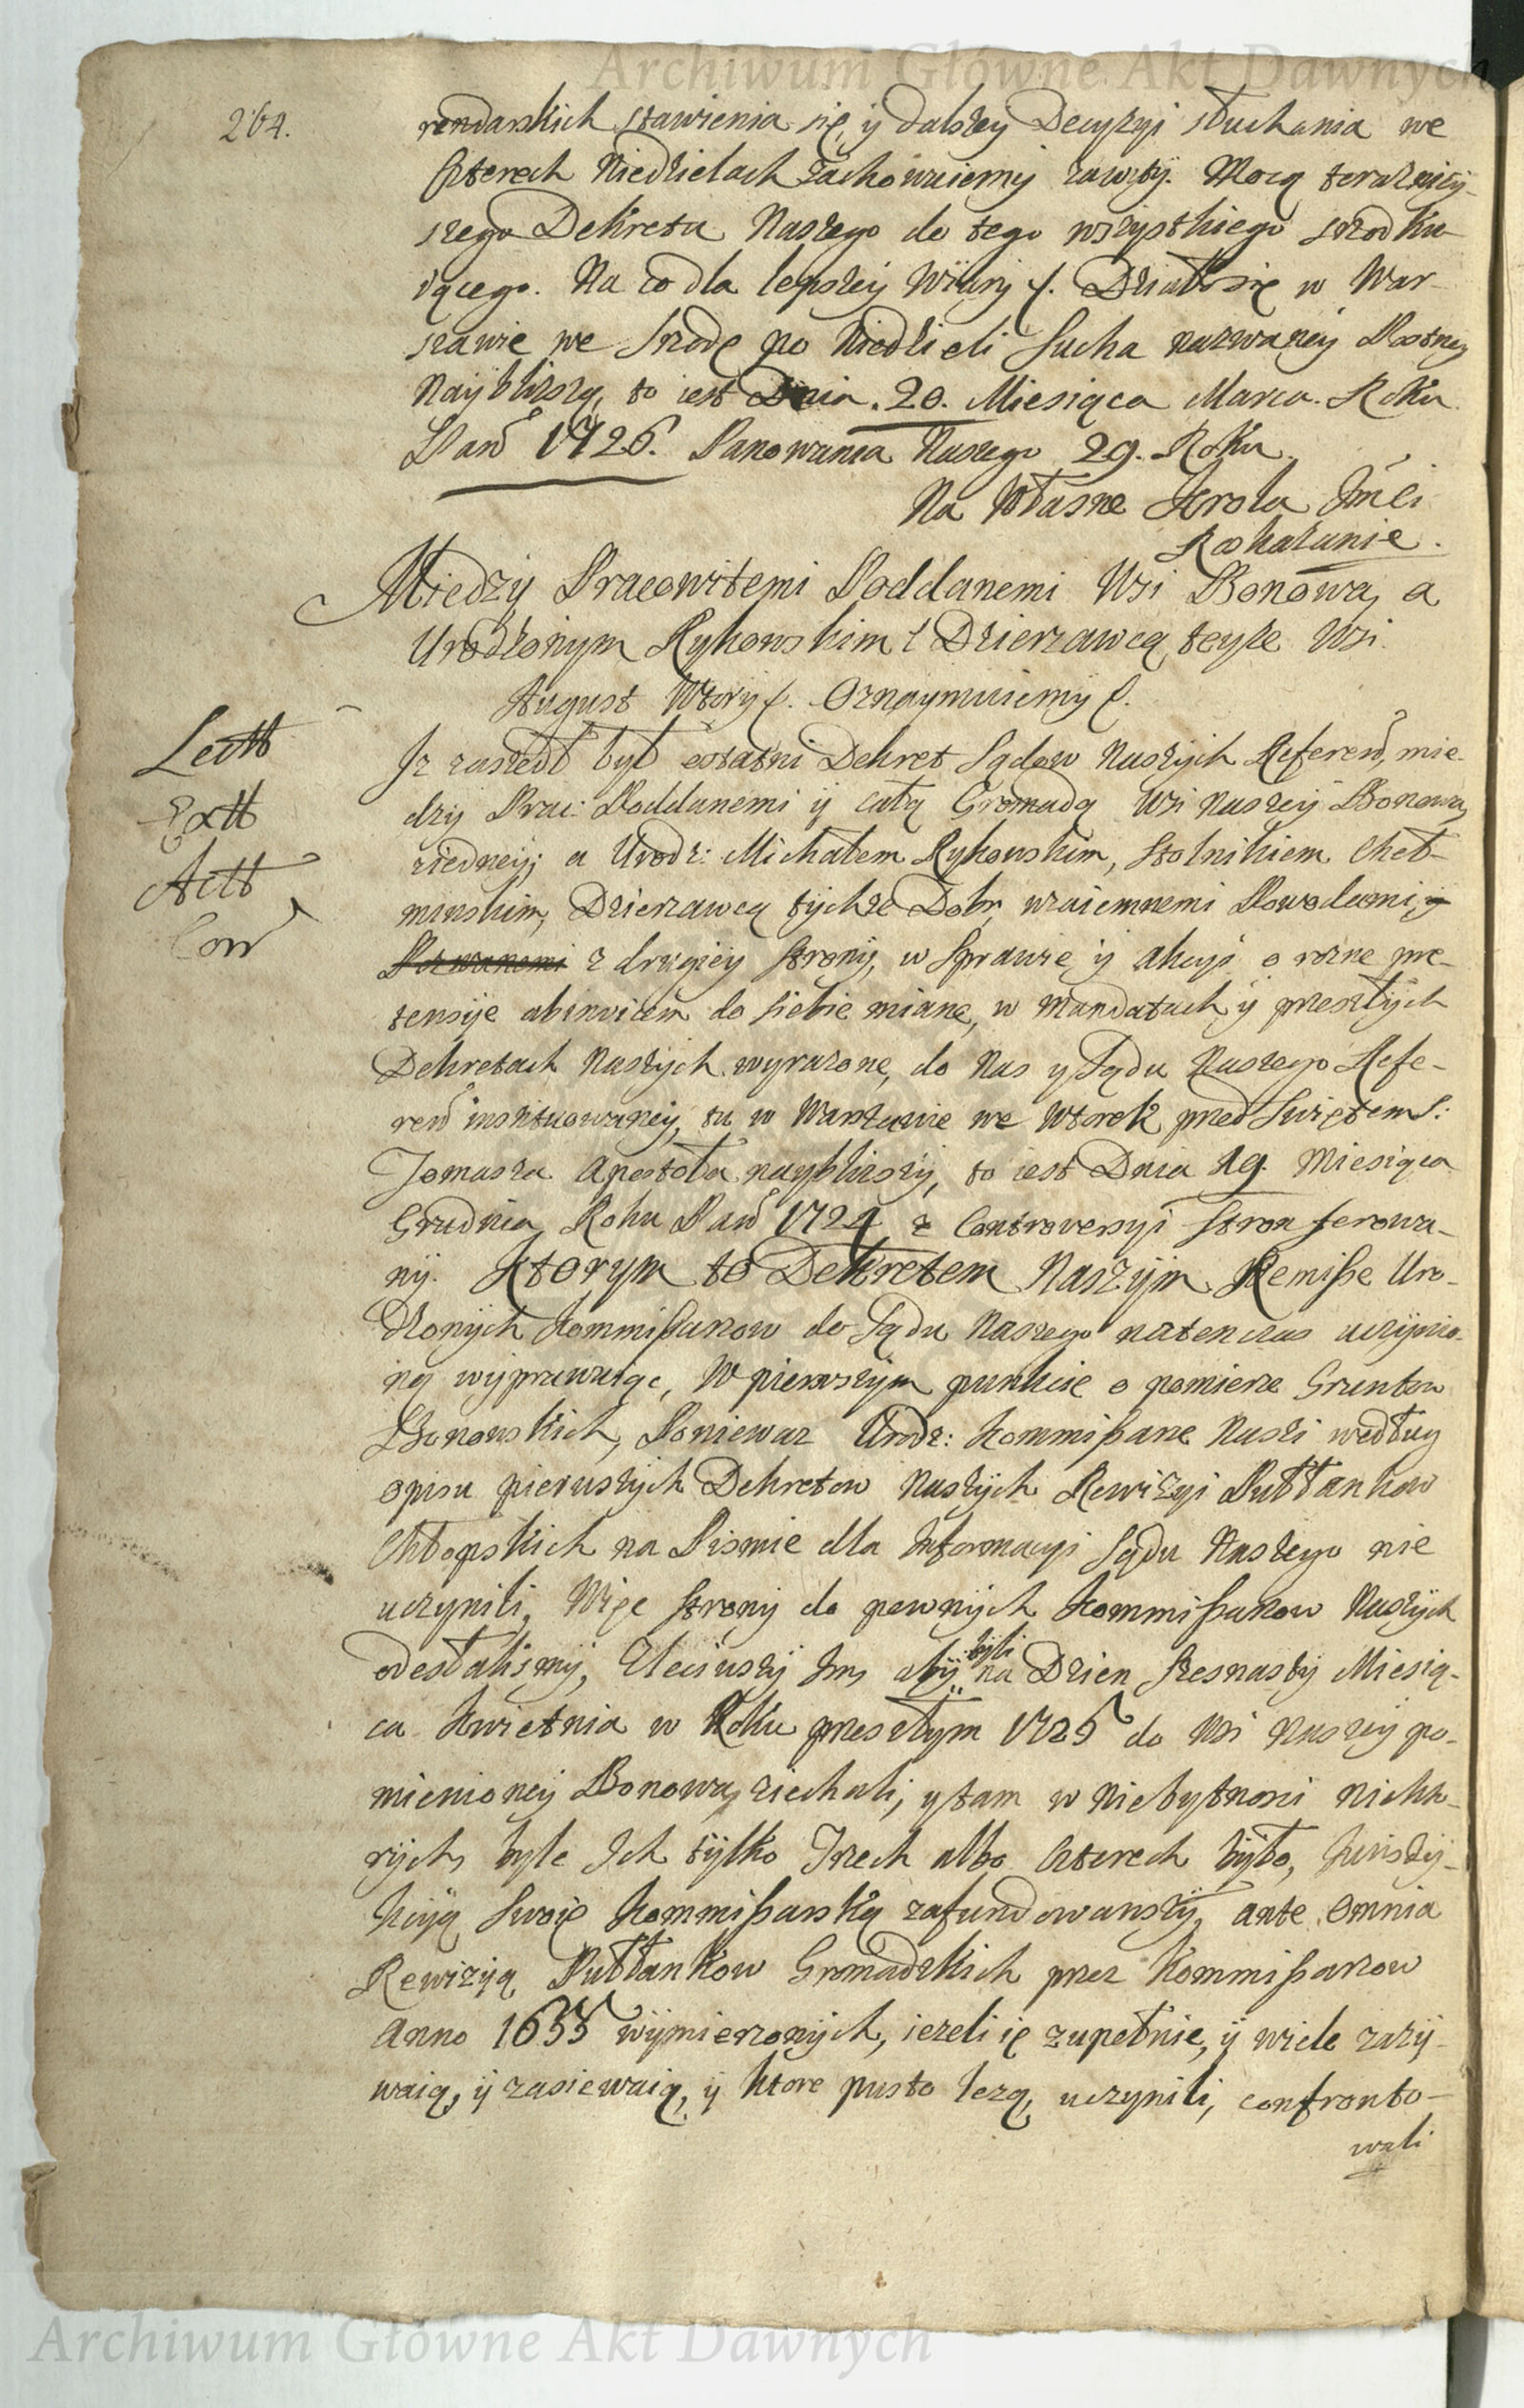 Archiwum Główne Akt Dawnych
264.
rendarskich stawienia się, ÿ dalszey Decyzyi słuchania we
czterech Niedzielach zachowuiemÿ zawitÿ. Mocą teraznieÿ-
szego Dekretu Naszego do tego wszystkiego srzodku-
iącego. Na co dla lepszeÿ Wiarÿ &. Działo się w War-
szawie we Srzodę po Niedzieli Sucha nazwaneÿ Postney
Naÿblizszą, to iest Dnia. 20. Miesiąca Marca. Roku
Pań 1726. Panowania Naszego 29. Roku.
Na Własne Krola Jmci
Roskazanie.
Miedzy Pracowitemi Poddanemi Wsi Bonowa, a
Urodzonym Rykowskim & Dzierzawcą teyze Wsi.
August Wtory &. Oznaymuiemy &.
Lectt
Extt
Actt
Corr
Iz zaszedł był ostatni Dekret Sądow Naszÿch Referen, mie-
dzy Prac: Poddanemi ÿ całą Gromadą Wsi Naszeÿ Bonowa
ziedneÿ; a Urodz: Michałem Rykowskim, Stolnikiem Cheł-
minskim, Dzierzawcą tÿchze Dobr, wzaiemnemi Powodami, ÿ
Pozwanemi z drugieÿ stronÿ, w Sprawie ÿ akcyi o rozne pre-
tensÿe abinvicem do siebie miane, w Mandatach ÿ przeszłÿch
Dekretach Naszÿch wyrazone, do Nas y Sądu Naszego Refe-
ren instituowaneÿ, tu w Warszawie we Wtorek przed Swiętem S:
Tomasza Apostoła nayblizszÿ, to iest Dnia 19. Miesiąca
Grudnia, Roku Pań 1724 z Controversyi stron ferowa-
nÿ. Ktorym to Dekretem Naszÿm Remisse Uro-
dzonÿch Kommissarzow do Sądu Naszego natenczas uczÿnio-
ną wÿprawuiąc, W pierwszÿm punkcie o pomierze Gruntow
Bonowskich, Poniewaz Urodz: Kommissarze Naszi według
opisu pierwszÿch Dekretow Naszÿch Rewizyi Pułłankow
Chłopskich na Pismie dla Informacyi Sądu Naszego nie
uczynili, Więc stronÿ do pewnÿch Kommissarzow Naszÿch
odesłalismÿ, Zleciwszÿ Im, abÿ byli na Dzien szesnastÿ Miesią-
ca Kwietnia w Roku przeszłym 1725 do Wsi Naszeÿ po-
mienioneÿ Bonowa, ziechali, y tam w Niebytnosci niekto-
rÿch, byle Ich tÿlko Trzech albo Czterech bÿło, Iurisdÿ-
kcÿą Swoię Kommissarską zafundowawszÿ, ante omnia
Rewizÿą Pułłankow Gromadzkich przez Kommissarzow
Anno 1655 wÿmierzonÿch, iezeli ie zupełnie, ÿ wiele zazÿ-
waią, ÿ zasiewaią, ÿ ktore pusto lezą, uczynili, confronto-
wali
Archiwum Główne Akt Dawnych